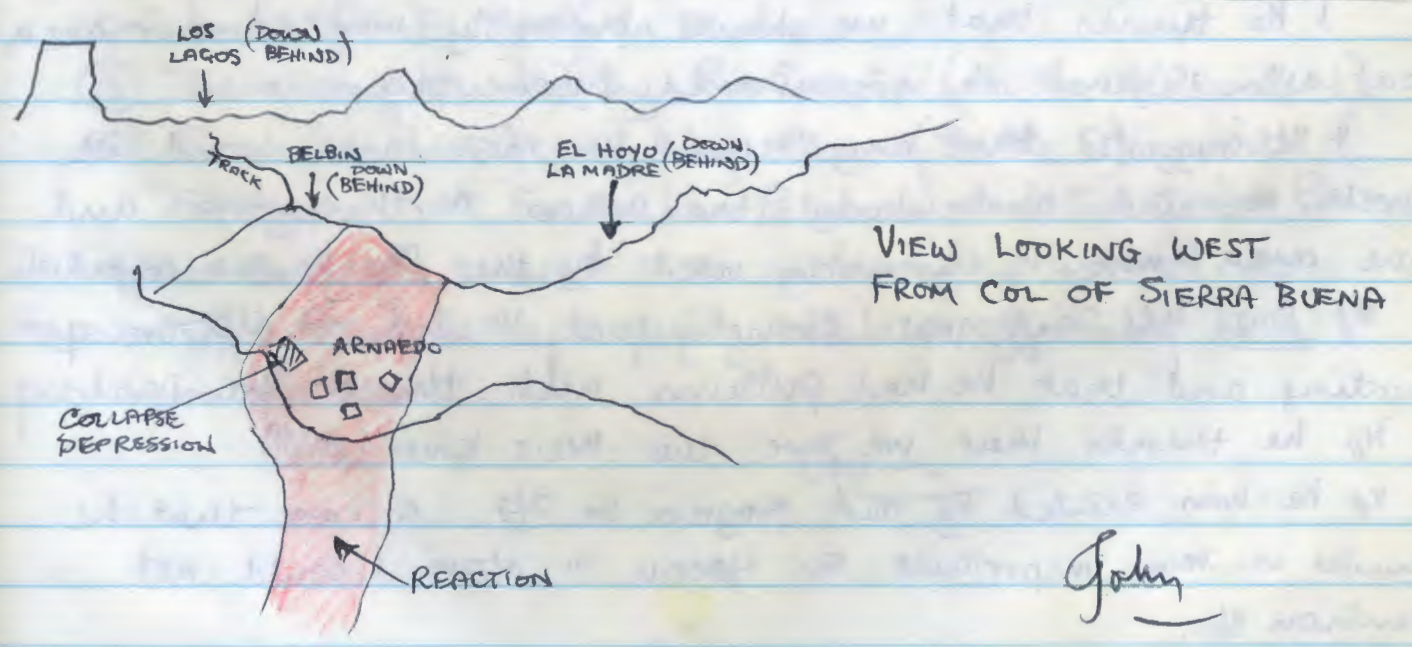 LOS (DOWN
LAGOS BEHIND)
BELBIN
DOWN
(BEHIND)
TRACK
EL HOYO (DOWN
LA MADRE BEHIND)
VIEW LOOKING WEST
FROM COL OF SIERRA BUENA
ARNAEDO
COLLAPSE
DEPRESSION
REACTION
John